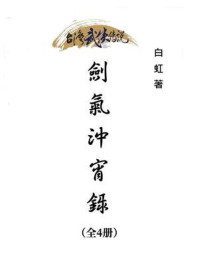 台湾武侠小说
白虹著
劍氣沖宵錄
(全4册)